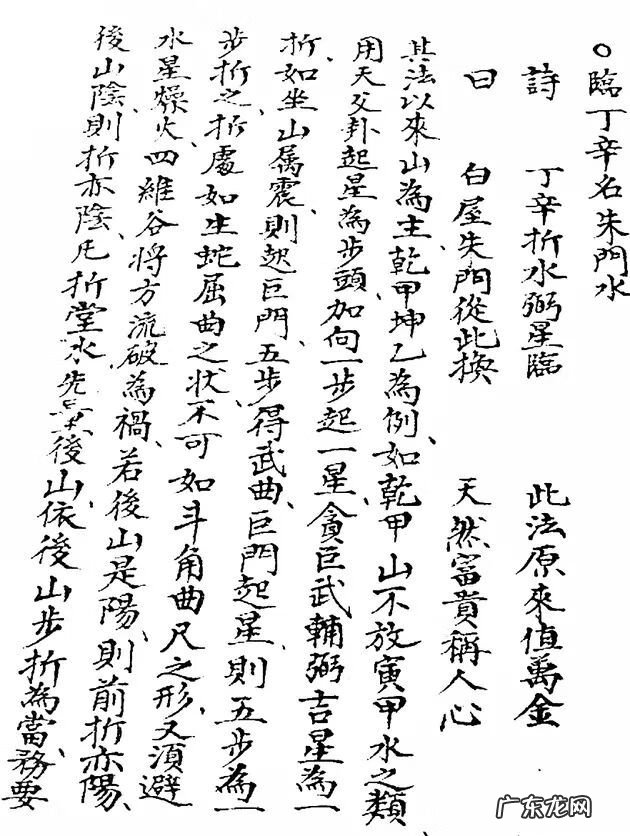 ○臨丁辛名朱門水
詩 丁辛折水弼星臨 此法原來值萬金
曰 白屋朱門從此換 天然富貴稱人心
其法以來山為主、乾甲坤乙為例、如乾甲山不放寅甲水之類、
用天父卦起星為步頭、加向一步起一星、貪巨武輔弼吉星為一
折、如坐山属震、則起巨門、五步得武曲、巨門起星、則五步為一
步折之、折處如生蛇屈曲之状、不可如斗角曲尺之形、又須避
水星燥火、四維谷将方流破為禍、若後山是陽、則前折亦陽、
後山陰、則折亦陰、凡折堂水、先 後山、依後山步折為當、務要
广东龙网